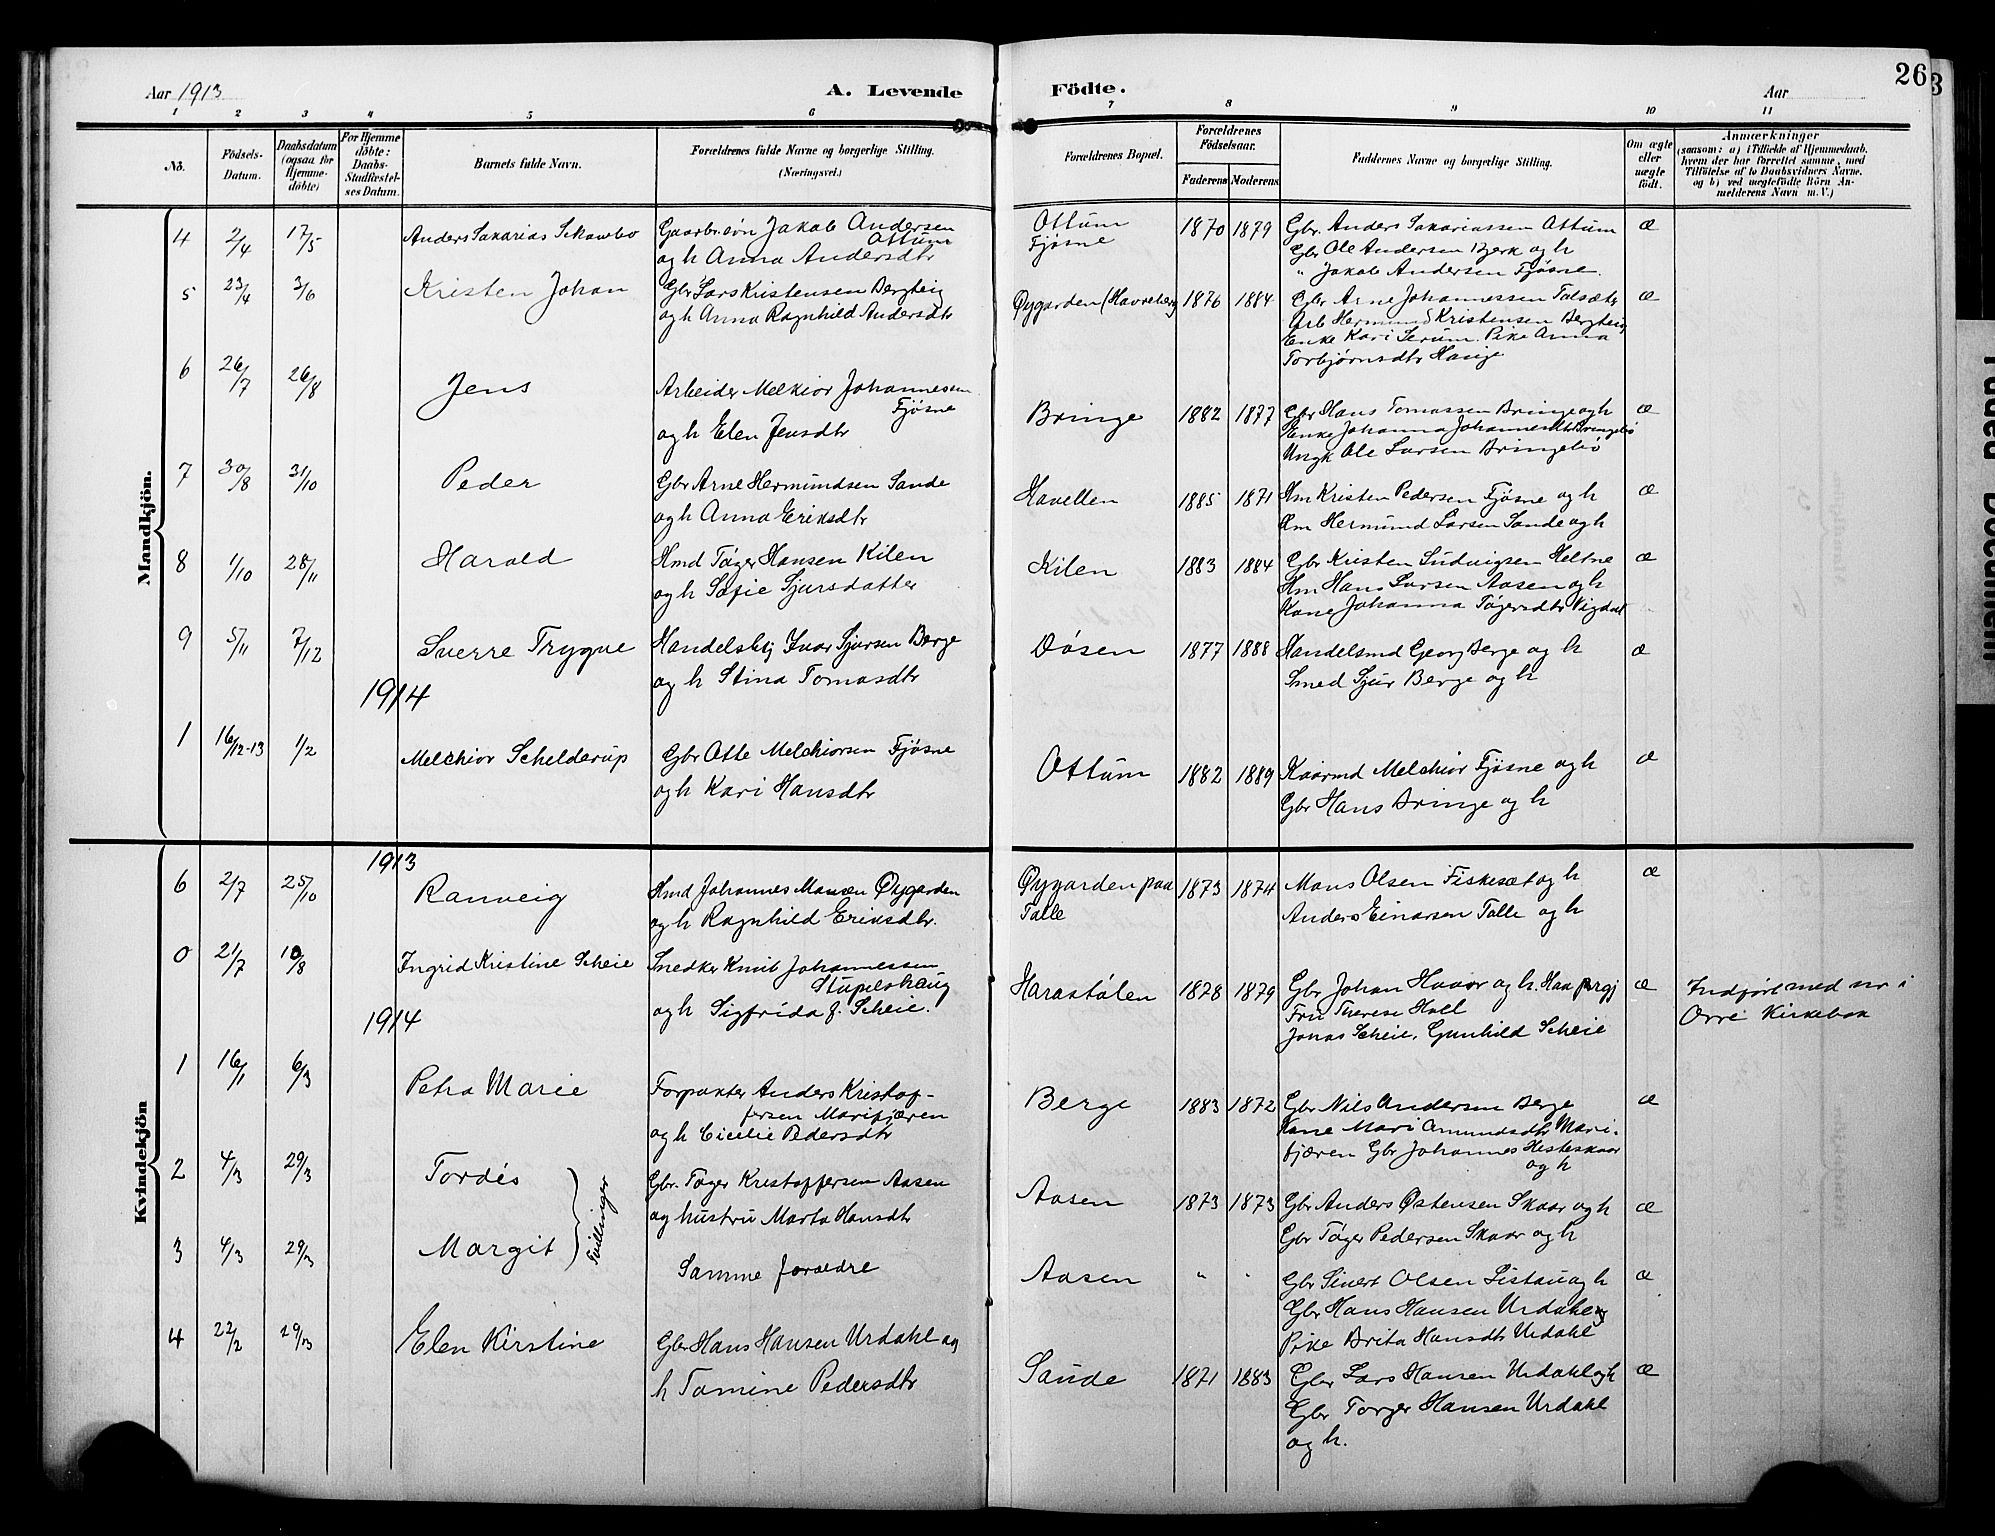 Aar 1913
A. Levende
Födte.
Aar
26
3
1 2 3 4 5 6 7 8 9 10 11
No.
Födsels-Datum.
Daabsdatum (ogsaa for Hjemmedöbte)
For Hjemmedöbte: Daabs-Stadfæstelses Datum.
Barnets fulde Navn.
Forældrenes fulde Navne og borgerlige Stilling.
(Næringsvei.)
Forældrenes Bopæl.
Forældrenes Födselsaar.
Faderens Moderens
Faddernes Navne og borgerlige Stilling.
Om ægte eller uægte födt.
Anmærkninger
(saasom: a) i Tilfælde af Hjemmedaab, hvem der har forrettet samme, med Tilföielse af to Daabsvidners Navne. og b) ved uægtefödte Börn Anmelderens Navn m. V.)
Mandkjön.
4 2/4 17/5 Anders Sakarias Schawbo Gaarbr. Jakob Andersen Ottum
og h Anna Andersdtr
Ottum
Fjøsne
1870 1879 Gbr. Anders Sakariassen Ottum æ
Gbr Ole Andersen Bjerk og h
" Jakob Andersen Fjøsne.
5 23/4 3/6 Kristen Johan Gbr Lars Kristensen Bergteig
og h Anna Ragnhild Andersdtr
Øygarden (Havreberg) 1876 1884 Gbr Arne Johannessen Talsæte æ
Arb Hermund Kristensen Bergteig
Enke Kari Serum. Pike Anna
Torbjørnsdtr Hauge
6 26/7 26/8 Jens Arbeider Melkior Johannessen
Fjøsne
og h Elen Jensdtr
Bringe 1882 1877 Gbr Hans Tomassen Bringe og h æ
Enke Johanna Johannesdtr Bringebø
Ungk Ole Larsen Bringebø
7 30/8 31/10 Peder Gbr Arne Hermundsen Sande
og h Anna Eriksdtr
Havellen 1885 1871 Hm Kristen Pedersen Fjøsne og h æ
Hm Hermund Larsen Sande og h
8 1/10 28/11 Harald Hmd Tøger Hansen Kilen
og h Sofie Sjursdatter
Kilen 1883 1884 Gbr Kristen Ludvigsen Heltne æ
Hm Hans Larsen Aasen og h
Kone Johanna Tøgersdtr Vigdal
9 5/11 7/12 Sverre Trygve Handelsbtj Ivar Sjursen Berge
og h Stina Tomasdtr
Døsen 1877 1888 Handelsmd Georg Berge og h æ
Smed Sjur Berge og h
1914
1 16/12-13 1/2 Melchior Schelderup Gbr Otte Melchiorsen Fjøsne
og h Kari Hansdtr
Ottum 1882 1889 Kaarmd Melchior Fjøsne og h æ
Gbr Hans Bringe og h
Kvindekjön
1913
6 2/7 25/10 Ranveig Hmd Johannes Monsen Øygarden
og h Ragnhild Eriksdtr.
Øygarden paa
Talle
1873 1874 Mons Olsen Fiskesæt og h æ
Anders Einarsen Talle og h
0 21/7 10/8 Ingrid Kristine Scheie Snedker Knut Johannessen
Stupelshaug
og h Sigfrida f. Scheie.
Harastølen 1878 1879 Gbr Johan Havor og h. æ
Fru Therese Holl
Jonas Scheie, Gunhild Scheie
Indført med no i
Orre Kirkebok
1914
1 16/1 6/3 Petra Marie Forpakter Anders Kristof-
fersen Marifjæren
og h Cicilie Pedersdtr
Berge 1883 1872 Gbr Nils Andersen Berge æ
Kone Mari Amundsdtr Mari-
fjæren Gbr Johannes Hesteskaar
og h
2 4/3 29/3 Tordis Gbr. Tøger Kristoffersen Aasen
og hustru Marta Hansdtr
Tvillinger
Aasen 1873 1873 Gbr Anders Østensen Skaar og h æ
Gbr Tøger Pedersen Skaar og h
3 4/3 29/3 Margit Samme forældre
Aasen " " Gbr Sivert Olsen Listau og h æ
Gbr Hans Hansen Urdahl og
Pike Brita Hansdtr Urdahl
4 22/2 29/3 Elen Kirstine Gbr Hans Hansen Urdahl og
h Tomine Pedersdtr
Sande 1871 1883 Gbr Lars Hansen Urdahl og h æ
Gbr Torger Hansen Urdahl
og h.